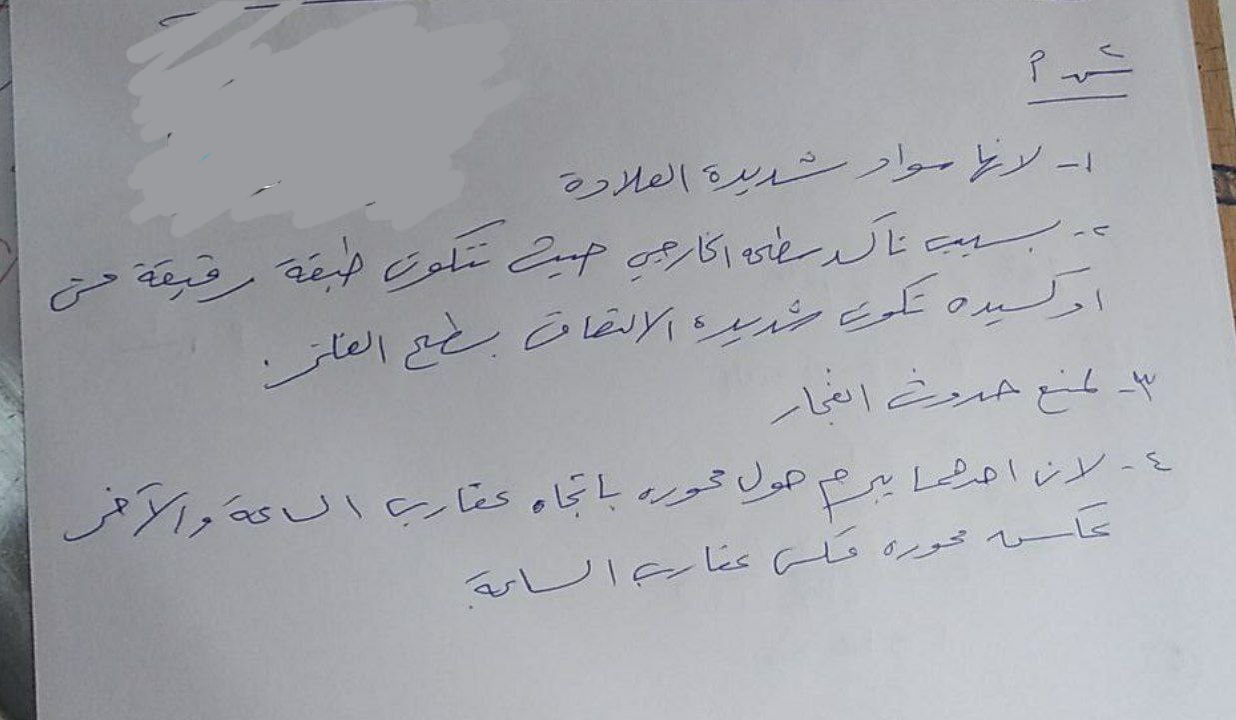 س٢
١- لانها مواد شديدة الصلادة
٢- بسبب تأكد سطحه الخارجي حيث تتكون طبقة رقيقة من
اوكسيده تكون شديدة الالتصاق بسطح الفلز.
٣- لمنع حدوث انفجار
٤- لان احدهما يبرم حول محوره باتجاه عقارب الساعة والآخر
محوره عكس عقارب الساعة.